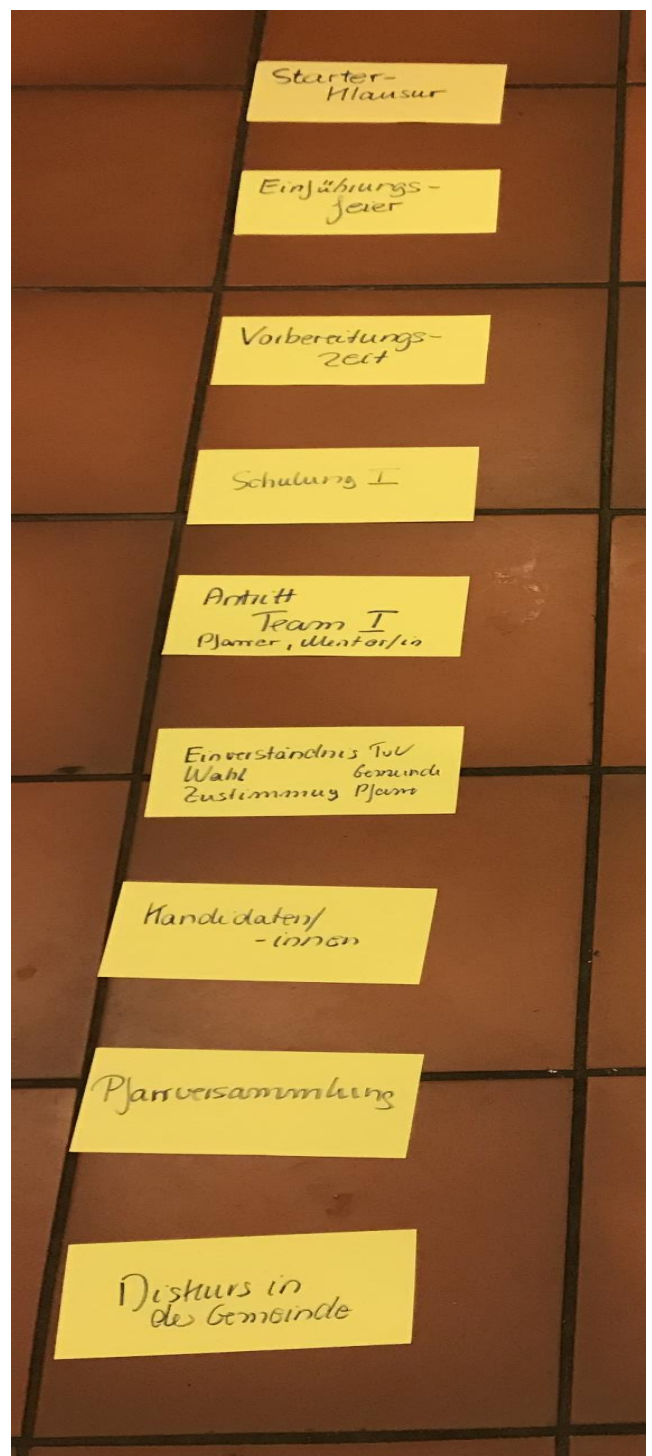 Starter-
Klausur
Einführungs-
feier
Vorbereitungs-
zeit
Schulung I
Antritt
Team I
Pfarrer, Mentor/in
Einverständnis TvV
Wahl Gemeinde
Zustimmung Pfarrer
Kandidaten/
-innen
Pfarrversammlung
Diskurs in
der Gemeinde